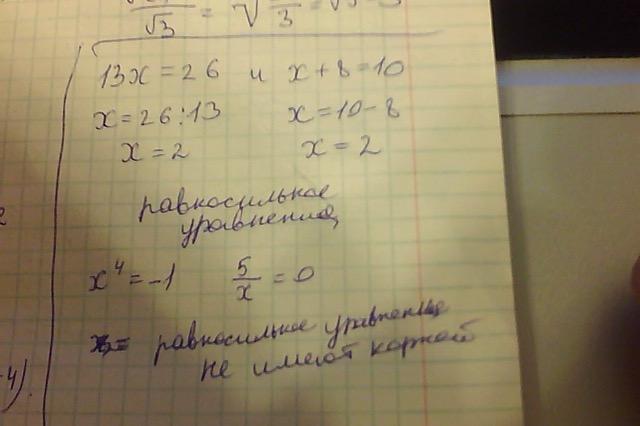 √3 = √ 3 = √9 = 3
13x = 26 и x + 8 = 10
x = 26 : 13 x = 10 - 8
x = 2 x = 2
равносильное
уравнение
x⁴ = -1 5/x = 0
равносильное уравнение
не имеют корней
4).